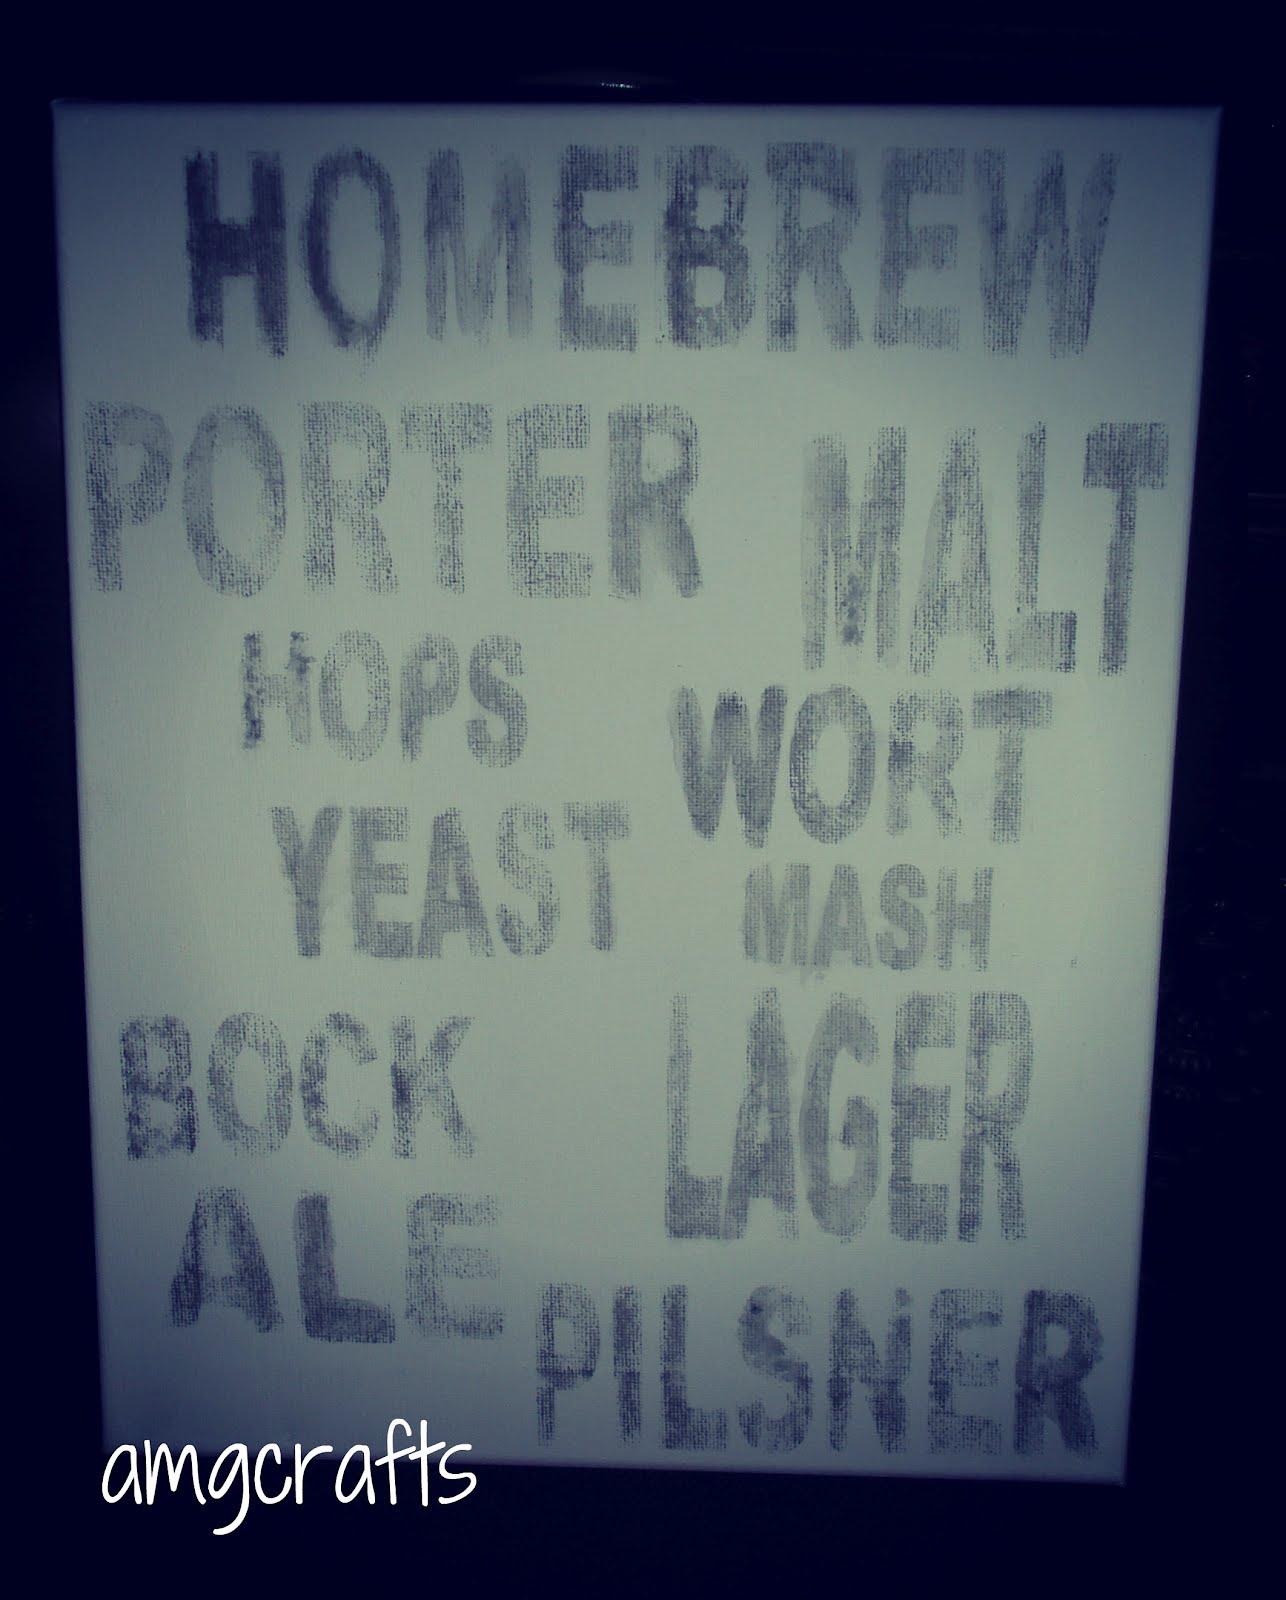 HOMEBREW
PORTER
MALT
HOPS
WORT
YEAST
MASH
BOCK
LAGER
ALE
PILSNER
amgcrafts